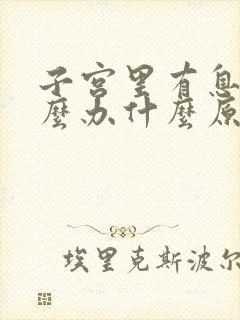 子宫里有息
麼办什麼原
埃里克斯波尔